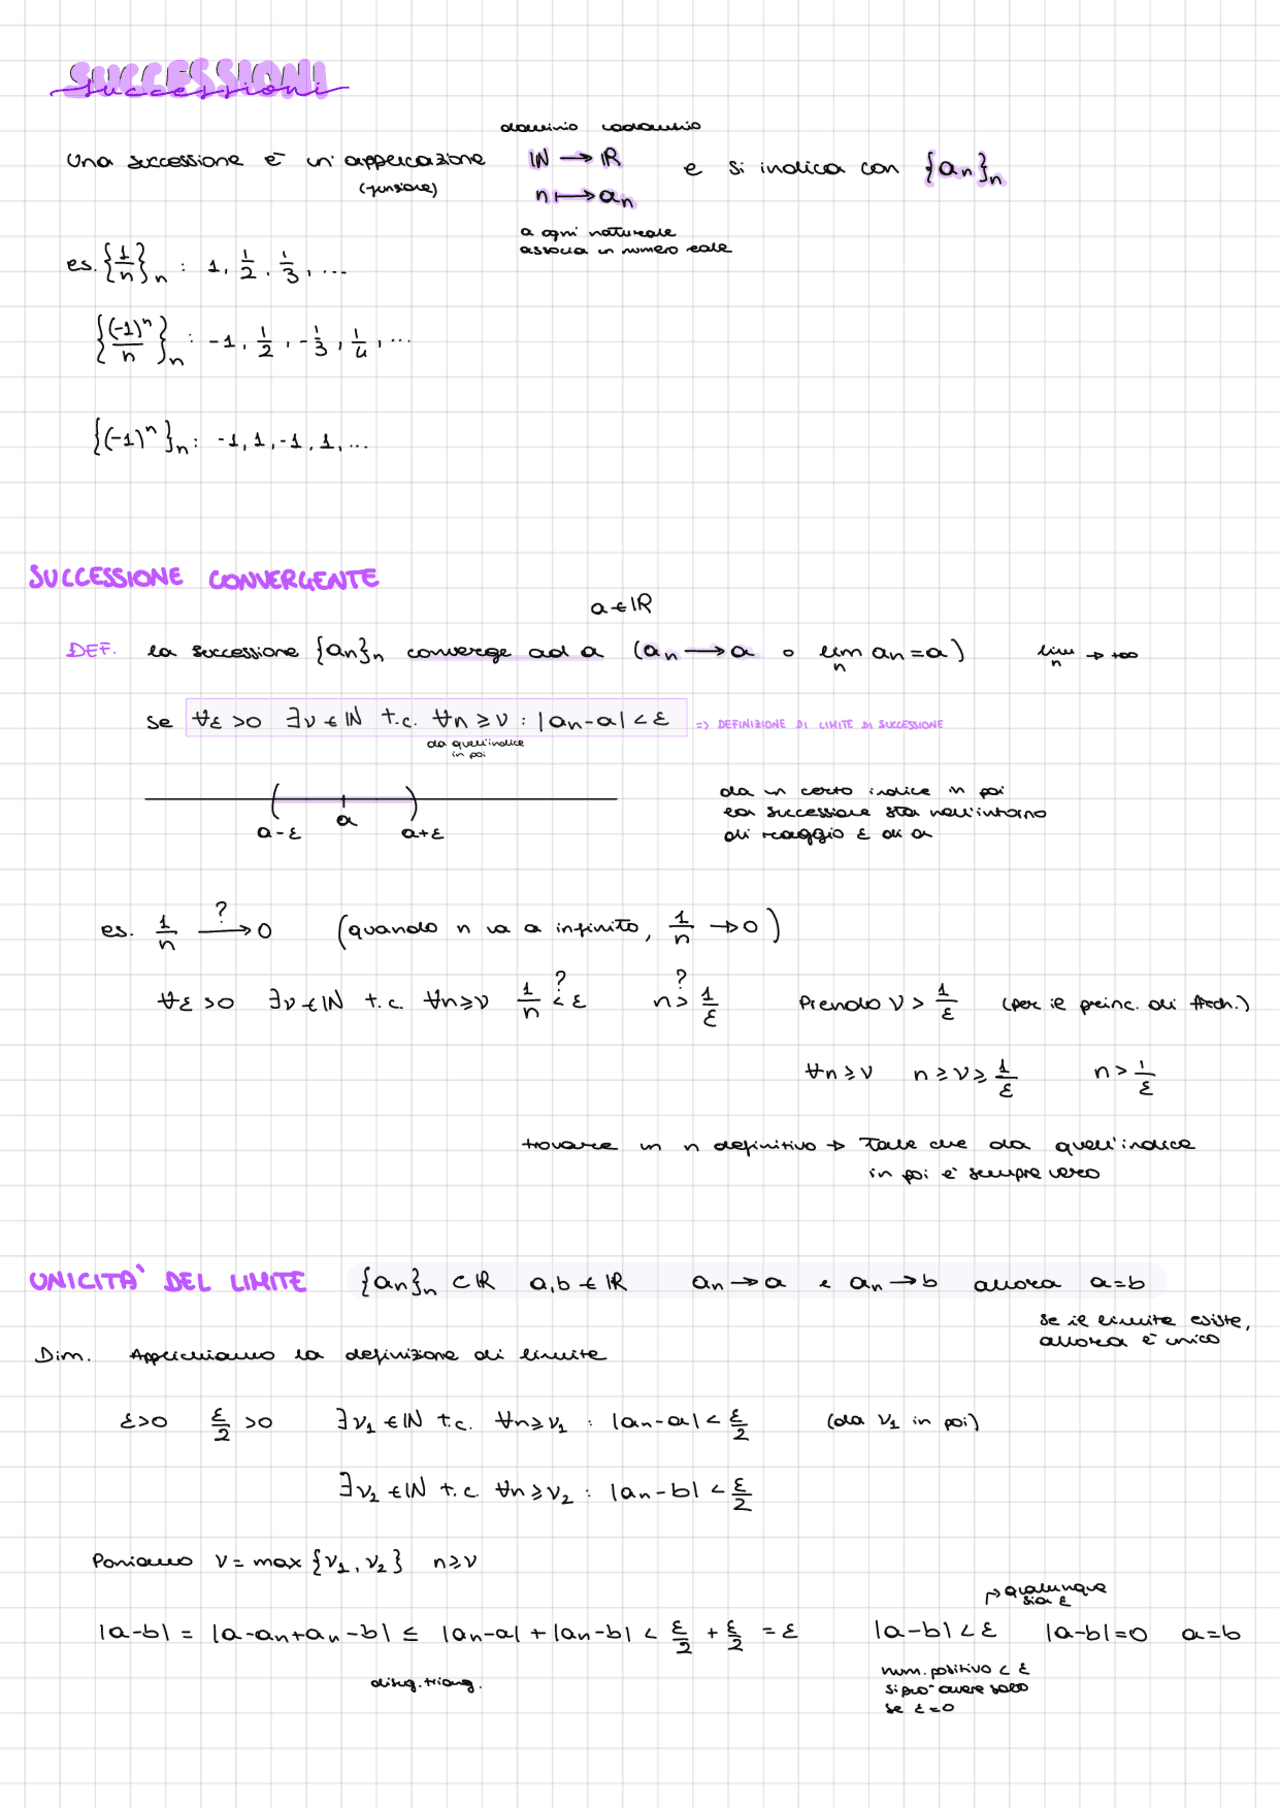 SUCCESSIONI
successioni
dominio codominio
Una successione è un'applicazione ℕ → ℝ e si indica con {aₙ}ₙ
(funzione) n ↦ aₙ
a ogni naturale
associa un numero reale
es. {1/n}ₙ : 1, 1/2, 1/3, ...
{(-1)ⁿ/n}ₙ : -1, 1/2, -1/3, 1/4, ...
{(-1)ⁿ}ₙ : -1, 1, -1, 1, ...
SUCCESSIONE CONVERGENTE
a ∈ ℝ
DEF. la successione {aₙ}ₙ converge ad a (aₙ → a o lim n aₙ = a) lim n → +∞
se ∀ε > 0 ∃ν ∈ ℕ t.c. ∀n ≥ ν : |aₙ - a| < ε => DEFINIZIONE DI LIMITE DI SUCCESSIONE
da quell'indice
in poi
a - ε a a + ε
da un certo indice in poi
la successione sta nell'intorno
di raggio ε di a
es. 1/n →? 0 (quando n va a infinito, 1/n → 0)
∀ε > 0 ∃ν ∈ ℕ t.c. ∀n ≥ ν 1/n <? ε n >? 1/ε Prendo ν > 1/ε (per il princ. di Arch.)
∀n ≥ ν n ≥ ν ≥ 1/ε n > 1/ε
trovare un n definitivo → Tale che da quell'indice
in poi è sempre vero
UNICITA' DEL LIMITE {aₙ}ₙ ⊂ ℝ a,b ∈ ℝ aₙ → a e aₙ → b allora a = b
se il limite esiste,
allora è unico
Dim. Applichiamo la definizione di limite
ε > 0 ε/2 > 0 ∃ν₁ ∈ ℕ t.c. ∀n ≥ ν₁ : |aₙ - a| < ε/2 (da ν₁ in poi)
∃ν₂ ∈ ℕ t.c. ∀n ≥ ν₂ : |aₙ - b| < ε/2
Poniamo ν = max {ν₁, ν₂} n ≥ ν
qualunque
sia ε
|a - b| = |a - aₙ + aₙ - b| ≤ |aₙ - a| + |aₙ - b| < ε/2 + ε/2 = ε |a - b| < ε |a - b| = 0 a = b
disug. triang.
num. positivo < ε
si può avere solo
se ε = 0